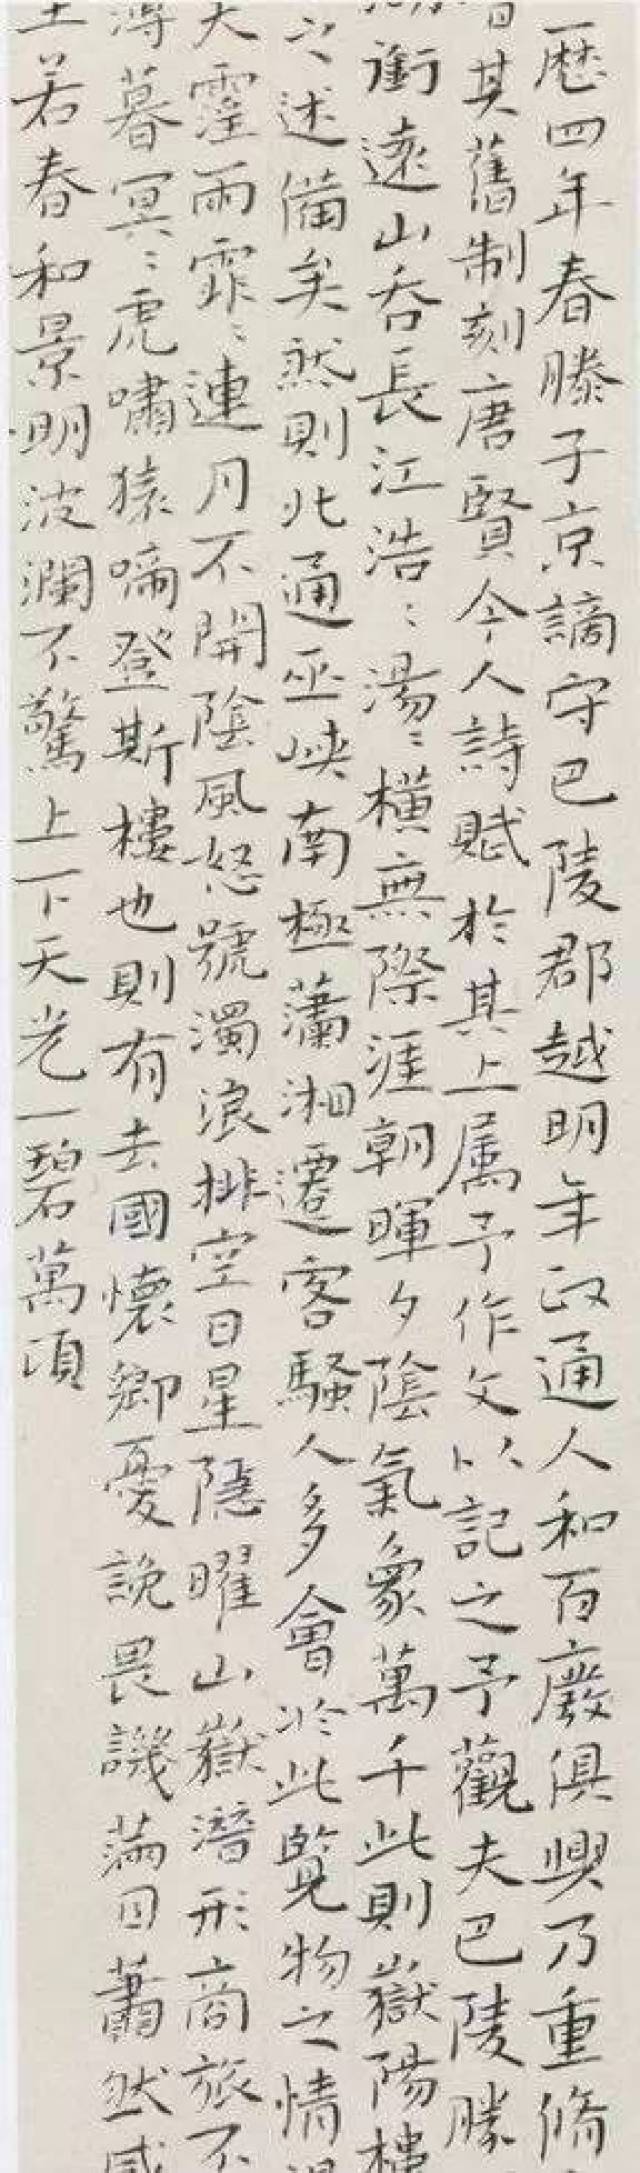 歴四年春滕子京謫守巴陵郡越明年政通人和百廢俱興乃重脩
其舊制刻唐賢今人詩賦於其上属予作文以記之予觀夫巴陵勝
銜遠山吞長江浩〻湯〻橫無際涯朝暉夕陰氣象萬千此則嶽陽樓
之述備矣然則北通巫峽南極瀟湘遷客騷人多會於此覽物之情
夫霪雨霏〻連月不開陰風怒號濁浪排空日星隱曜山嶽潛形商旅不
薄暮冥〻虎嘯猿啼登斯樓也則有去國懷鄉憂讒畏譏滿目蕭然感
至若春和景明波瀾不驚上下天光一碧萬頃